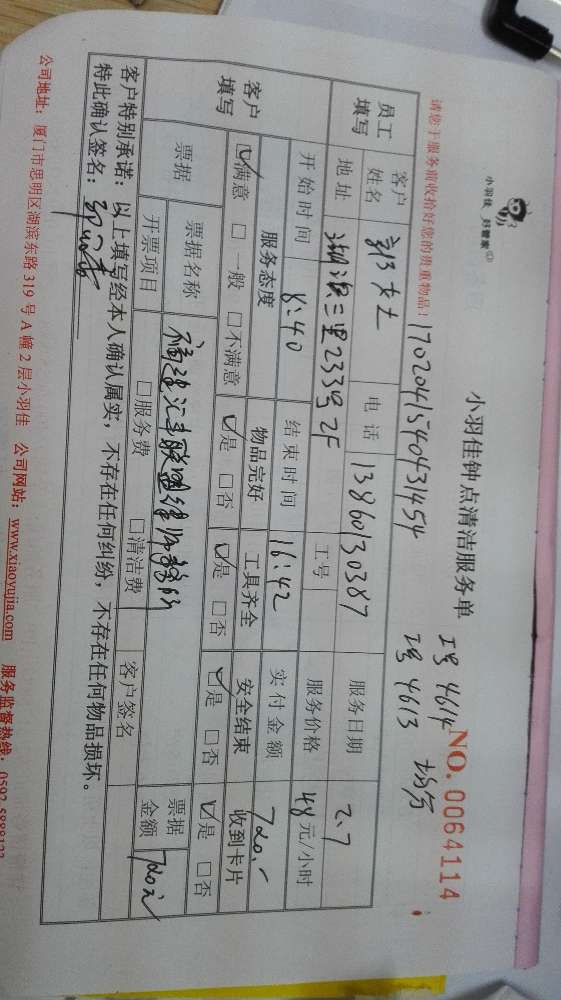 小羽佳 好管家
小羽佳钟点清洁服务单
NO. 0064114
工号 4614
工号 4613
请您于服务前收拾好您的贵重物品! 1702041540431454
员工填写 客户姓名 女士 电话 13860130387 服务日期 2.7
地址 湖滨三里233号2F 工号 服务价格 48元/小时
客户填写 开始时间 8:40 结束时间 16:42 实付金额 720.-
服务态度 物品完好 工具齐全 安全结束 收到卡片
☑满意 □一般 □不满意 ☑是 □否 ☑是 □否 ☑是 □否 ☑是 □否
票据 票据名称 福建汇丰联盟律师事务所 票据金额 720元
开票项目 □服务费 □清洁费 客户签名
客户特别承诺:以上填写经本人确认属实,不存在任何纠纷,不存在任何物品损坏。
特此确认签名:
公司地址:厦门市思明区湖滨东路319号A幢2层小羽佳 公司网站:www.xiaoyujia.com 服务监督热线:0592-5888123